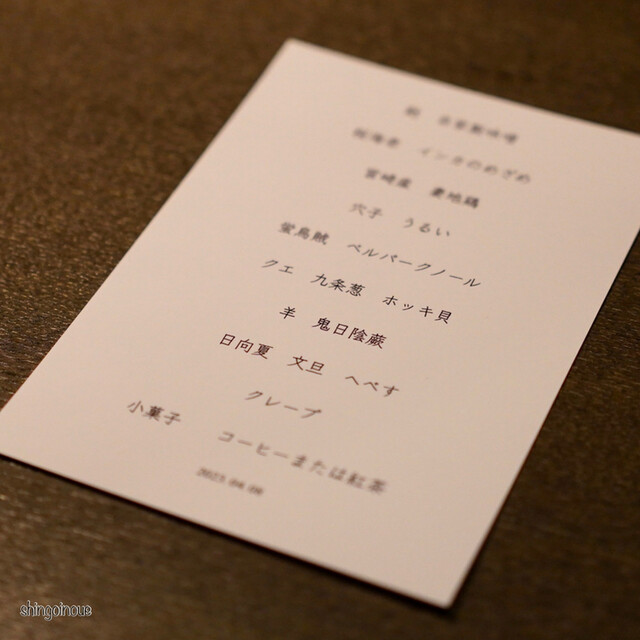 自家製味噌
インカのめざめ
宮崎産 地鶏
穴子 うるい
蛍烏賊 ペルパークノール
クエ 九条葱 ホッキ貝
羊 鬼日陰蕨
日向夏 文旦 へべす
クレープ
小菓子 コーヒーまたは紅茶
shingoinoue